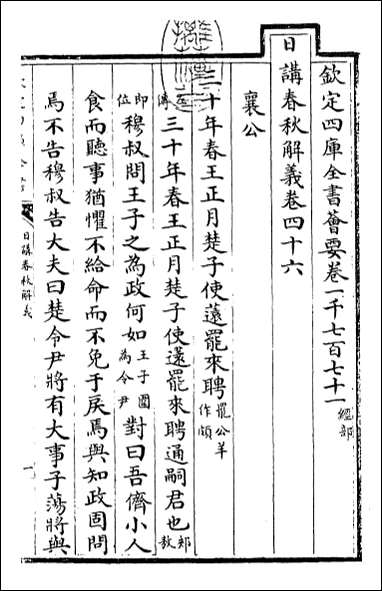 欽定四庫全書薈要卷一千七百七十一經部
日講春秋解義卷四十六
襄公
三十年春王正月楚子使薳罷來聘罷公羊作頗
左傳三十年春王正月楚子使薳罷來聘通嗣君也郟敖
即位穆叔問王子之為政何如王子圍為令尹對曰吾儕小人
食而聽事猶懼不給命而不免于戾焉與知政固問
焉不告穆叔告大夫曰楚令尹將有大事子蕩將與
日講春秋解義
一